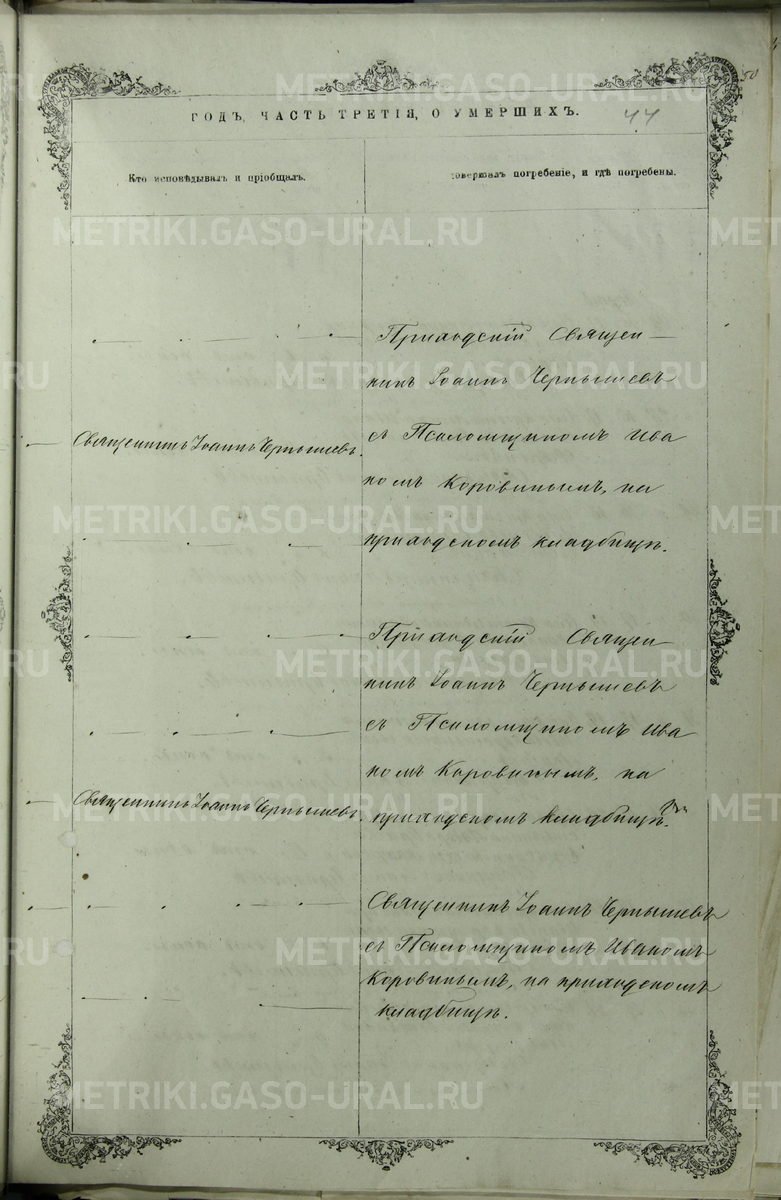 50
ГОДЪ, ЧАСТЬ ТРЕТІЯ, О УМЕРШИХЪ.
44
Кто исповѣдывалъ и пріобщалъ.
совершалъ погребеніе, и гдѣ погребены.
Приходскій Священ–
никъ Іоаннъ Чернышевъ
съ Псаломщикомъ Ива
номъ Коровинымъ, на
приходскомъ кладбищѣ.
Священникъ Іоаннъ Чернышевъ.
Приходскій Священ
никъ Іоаннъ Чернышевъ
съ Псаломщикомъ Ива
номъ Коровинымъ, на
приходскомъ кладбищѣ.
Священникъ Іоаннъ Чернышевъ.
Священникъ Іоаннъ Чернышевъ
съ Псаломщикомъ Иваномъ
Коровинымъ, на приходскомъ
кладбищѣ.
METRIKI.GASO-URAL.RU